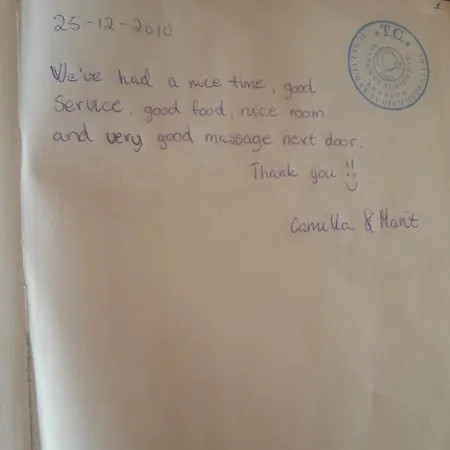 25-12-2010
T.C.
We've had a nice time, good
Service, good food, nice room
and very good massage next door.
Thank you !!
Camilla & Marit